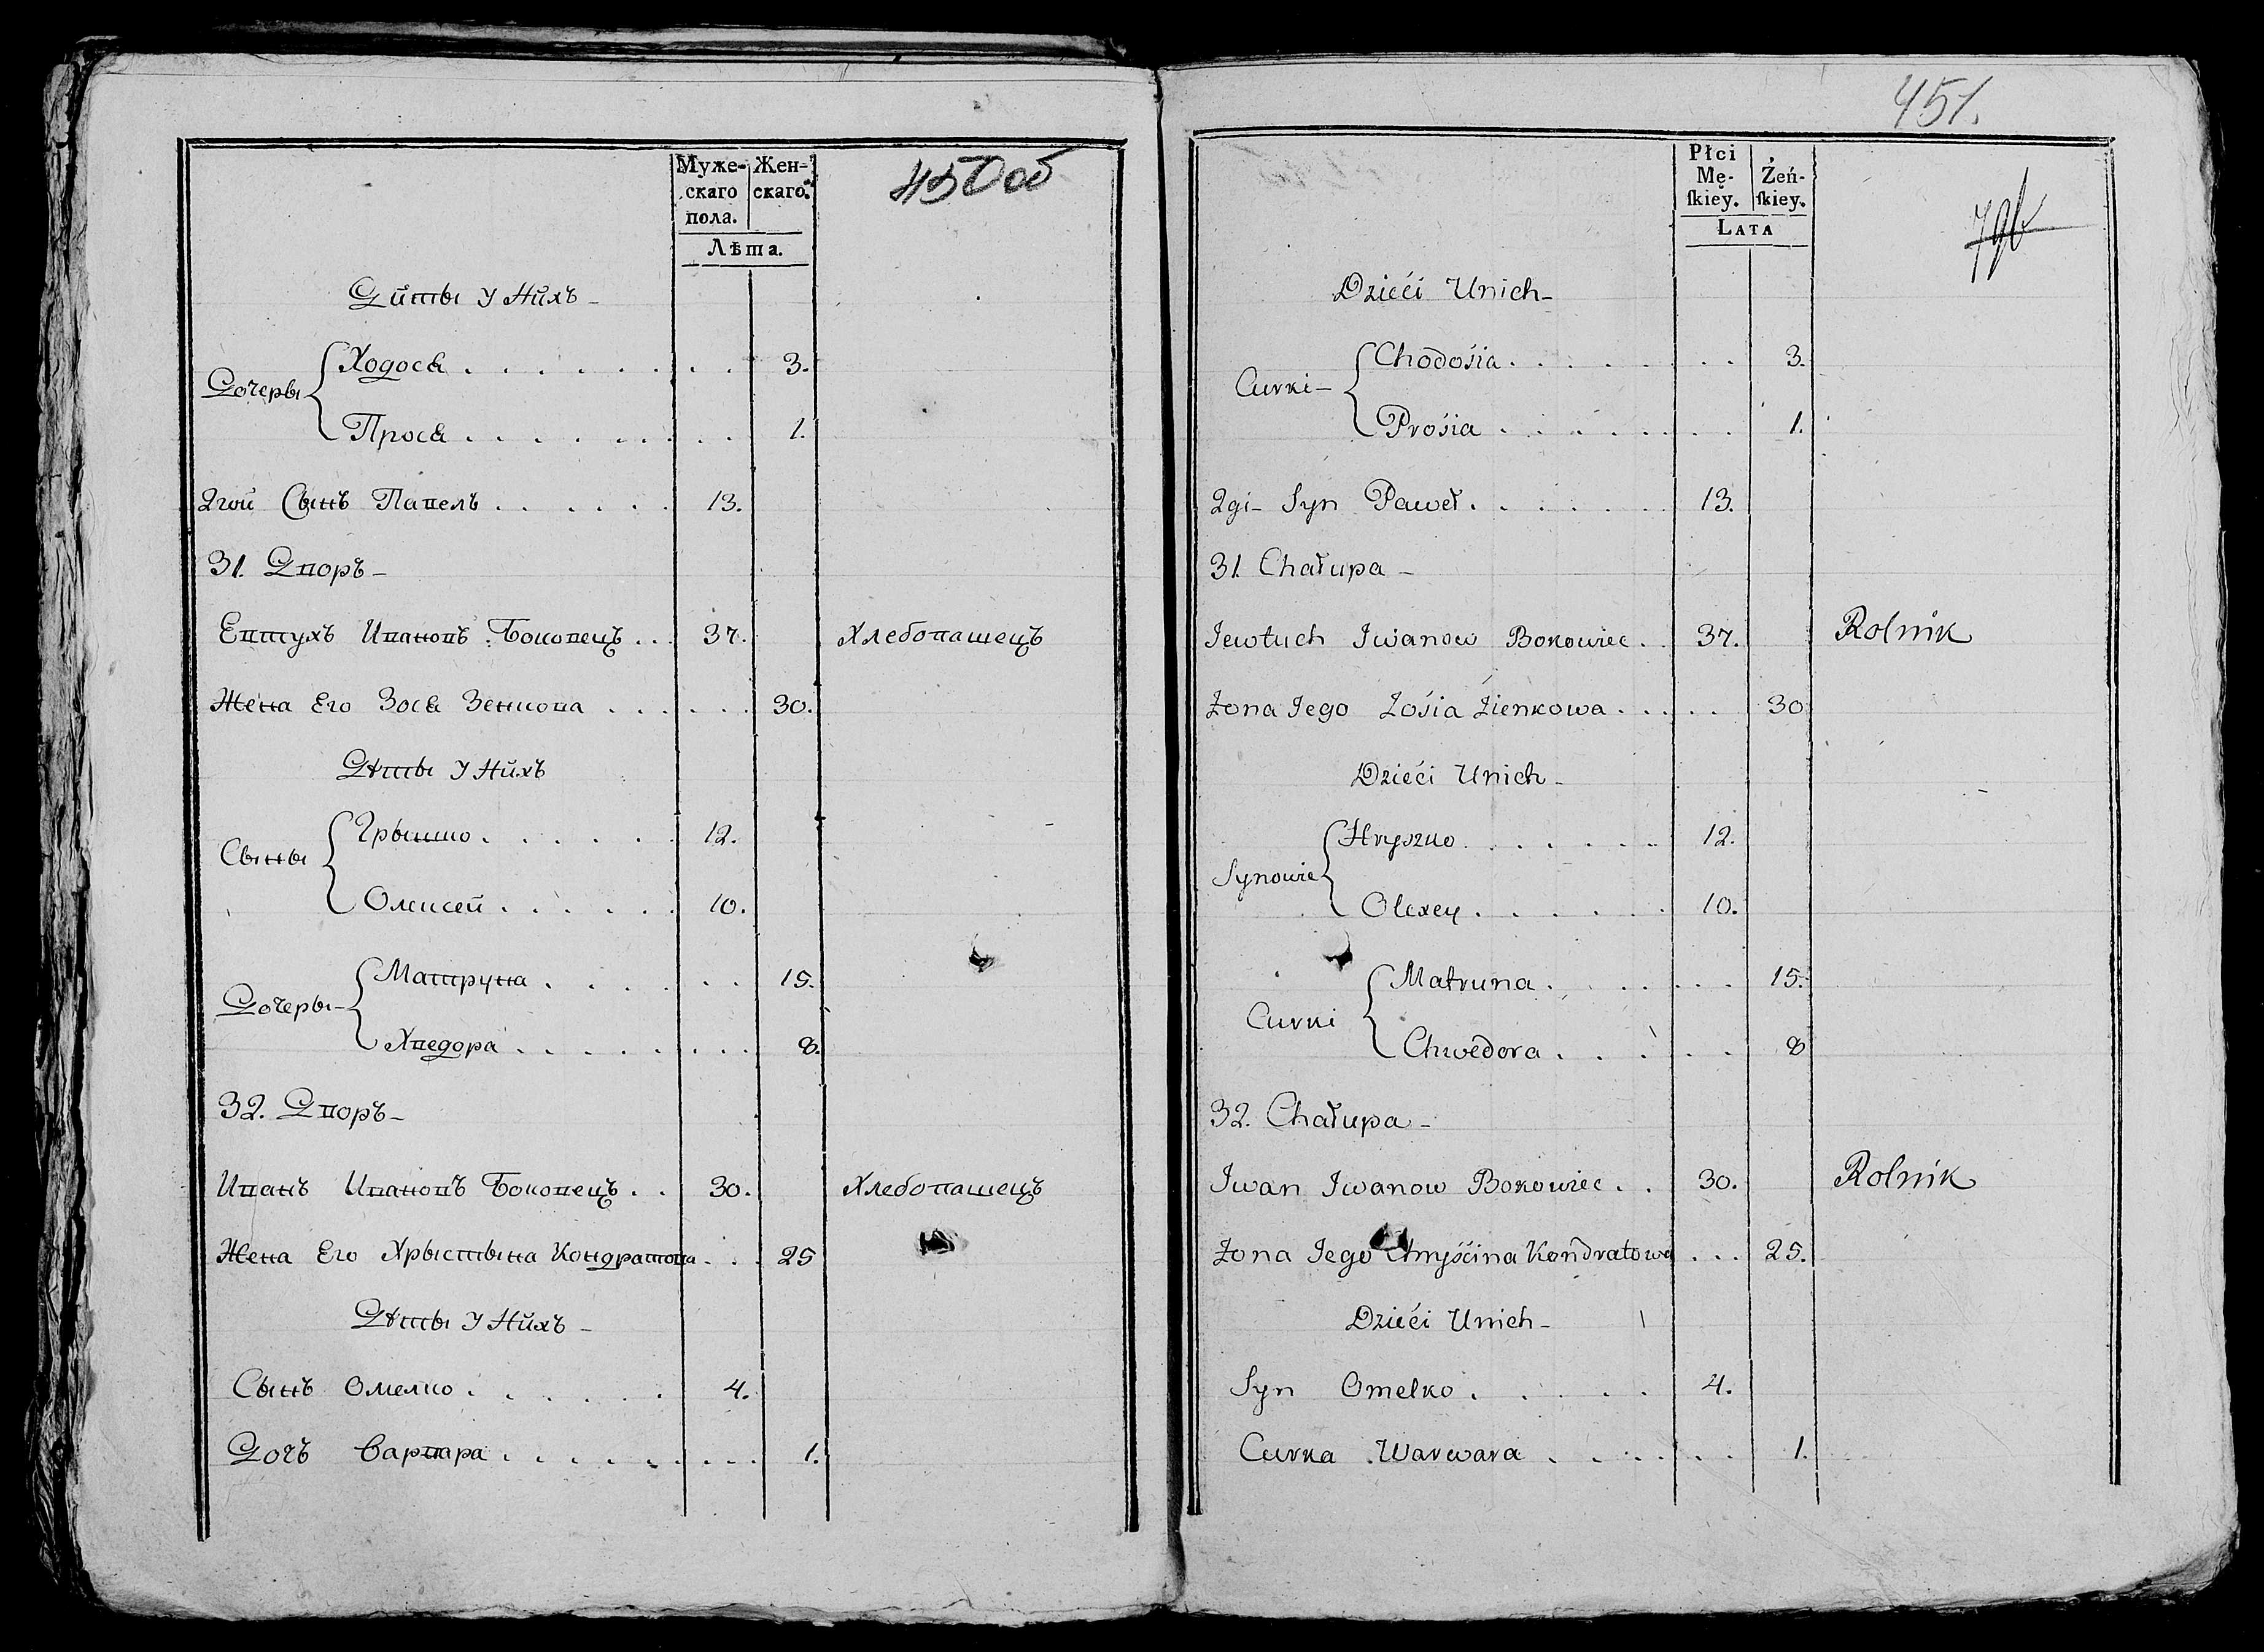 450 об
Муже-
скаго
пола.
Жен-
скаго.
Лѣта.
Дѝты У Нйхъ -
Дочеры
Ходося . . . . . . . . . 3.
Прося . . . . . . . . . 1.
2гой Сынъ Павелъ . . . . . . 13.
31. Дворъ -
Евтухъ Ивановъ Боковецъ . . 37. Хлебопашецъ
Жена Его Зося Зенкова . . . . . . 30.
Дѣты У Нйхъ
Сыны
Грышко . . . . . . 12.
Олексей . . . . . . 10.
Дочеры -
Матруна . . . . . . 15.
Хведора . . . . . . . . 8.
32. Дворъ -
Иванъ Ивановъ Боковецъ . . 30. Хлебопашецъ
Жена Его Хрыстына Кондратова . . . 25
Дѣты У Нйхъ -
Сынъ Омелко . . . . . . 4.
Дочъ Варвара . . . . . . . . . 1.
451.
Płci
Mę-
ſkiey.
Żeń-
ſkiey.
Lata
Dzieći Unich -
Curki -
Chodośia . . . . . . . 3.
Prośia . . . . . . . . 1.
2gi - Syn Paweł . . . . . . 13.
31. Chałupa -
Jewtuch Iwanow Bokowiec . . 37. Rolnik
Żona Jego Zośia Zienkowa . . . . . 30
Dzieći Unich -
Synowie
Hryszko . . . . . . 12.
Olexey . . . . . . 10.
Curki
Matruna . . . . . . . 15.
Chwedora . . . . . . 8
32. Chałupa -
Iwan Iwanow Bokowiec . . 30. Rolnik
Żona Jego Chryśćina Kondratowa . . . 25.
Dzieći Unich -
Syn Omelko . . . . . 4.
Curka Warwara . . . . . . 1.